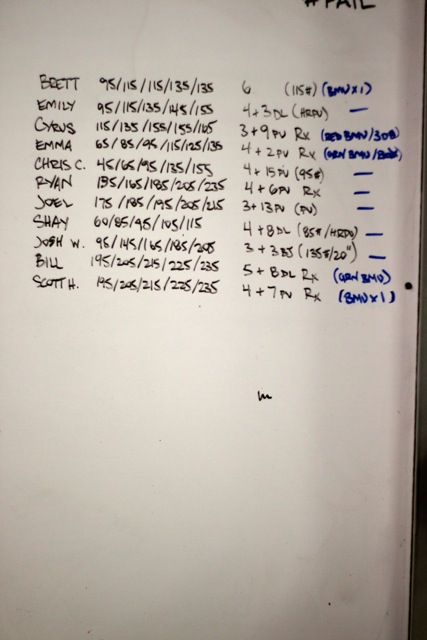 #FAIL
BRETT 95/115/115/135/135 6 (115#) (BMU X1)
EMILY 95/115/135/145/155 4+3DL (HRPU) —
CYRUS 115/135/155/155/165 3+9PU RX (RED BMU/30#)
EMMA 65/85/95/115/125/135 4+2PU RX (GRN BMU/
CHRIS C. 45/65/95/135/155 4+15PU (95#) —
RYAN 135/165/185/205/235 4+6PU RX —
JOEL 175/185/195/205/215 3+13PU (PU) —
SHAY 60/85/95/105/115 4+8DL (85#/HRPU) —
JOSH W. 95/145/165/185/205 3+3BJ (135#/20") —
BILL 195/205/215/225/235 5+8DL RX (GRN BMU)
SCOTT H. 195/205/215/225/235 4+7PU RX (BMU X1)